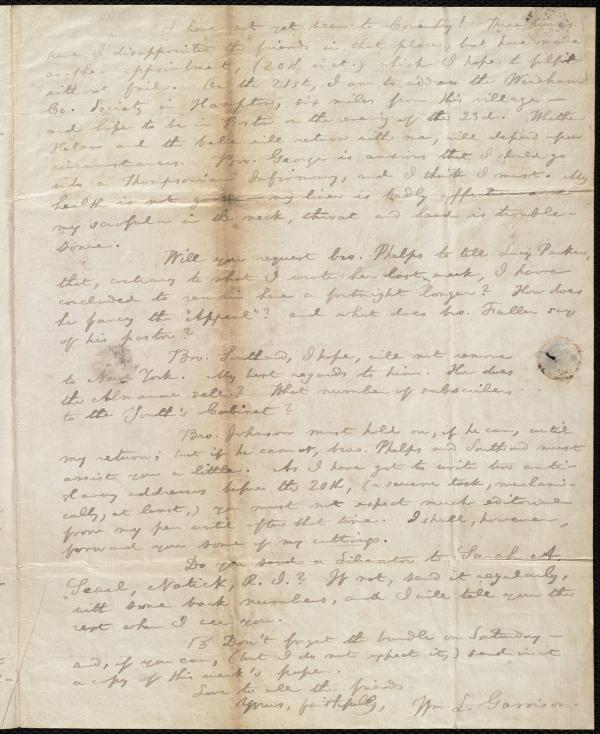 I have not yet been to Coventry! Three times
have I disappointed the friends in that place, but have made
another appointment, (20th inst.) which I hope to fulfil
without fail. On the 21st, I am to address the Windham
Co. Society in Hampton, six miles from this village—
and hope to be in Boston on the evening of the 23d. Whether
Helen and the babe will return with me, will depend upon
circumstances. Bro. George is anxious that I should go
into a Thompsonian Infirmary, and I think I must. My
health is not good—my liver is badly affected—and
my scrofulous in the neck, throat and head is trouble-
some.
Will you request bro. Phelps to tell Lucy Parker,
that, contrary to what I wrote her last week, I have
concluded to remain here a fortnight longer? How does
he fancy the "Appeal"? and what does bro. Fuller say
of his pastor?
Bro. Southard, I hope, will not remove
to New York. My best regards to him. How does
the Almanac sell? What number of subscribers
to the South's Cabinet?
Bro. Johnson must hold on, if he can, until
my return; but if he cannot, bros. Phelps and Southard must
assist you a little. As I have got to write two anti-
slavery addresses before the 20th, (a severe task, mechani-
cally, at least,) you must not expect much editorial
from my pen until after that time. I shall, however,
forward you some of my cuttings.
Do you send a Liberator to Sarah A.
Search, Natick, R. I.? If not, send it regularly,
with some back numbers, and I will tell you the
rest when I see you.
Don't forget the bundle on Saturday—
and, if you can, (but I do not expect it,) send in it
a copy of this week's paper.
Love to all the friends.
Yours, faithfully, Wm L. Garrison.